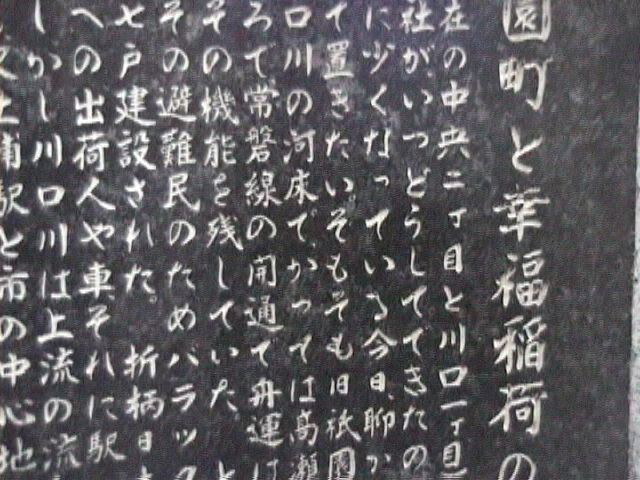 園町と幸福稲荷の
在の中央二丁目と川口一丁目
社が、いつどうしてできたの
に少くなっている今日、聊か
て置きたい。そもそも旧祇園
口川の河床で、かつては高瀬
ろで、常磐線の開通で舟運は
その機能を残していた。と
その避難民のためバラック
七戸建設された。折柄日
への出荷人や車それに駅
しかし川口川は上流の流
土浦駅と市の中心地